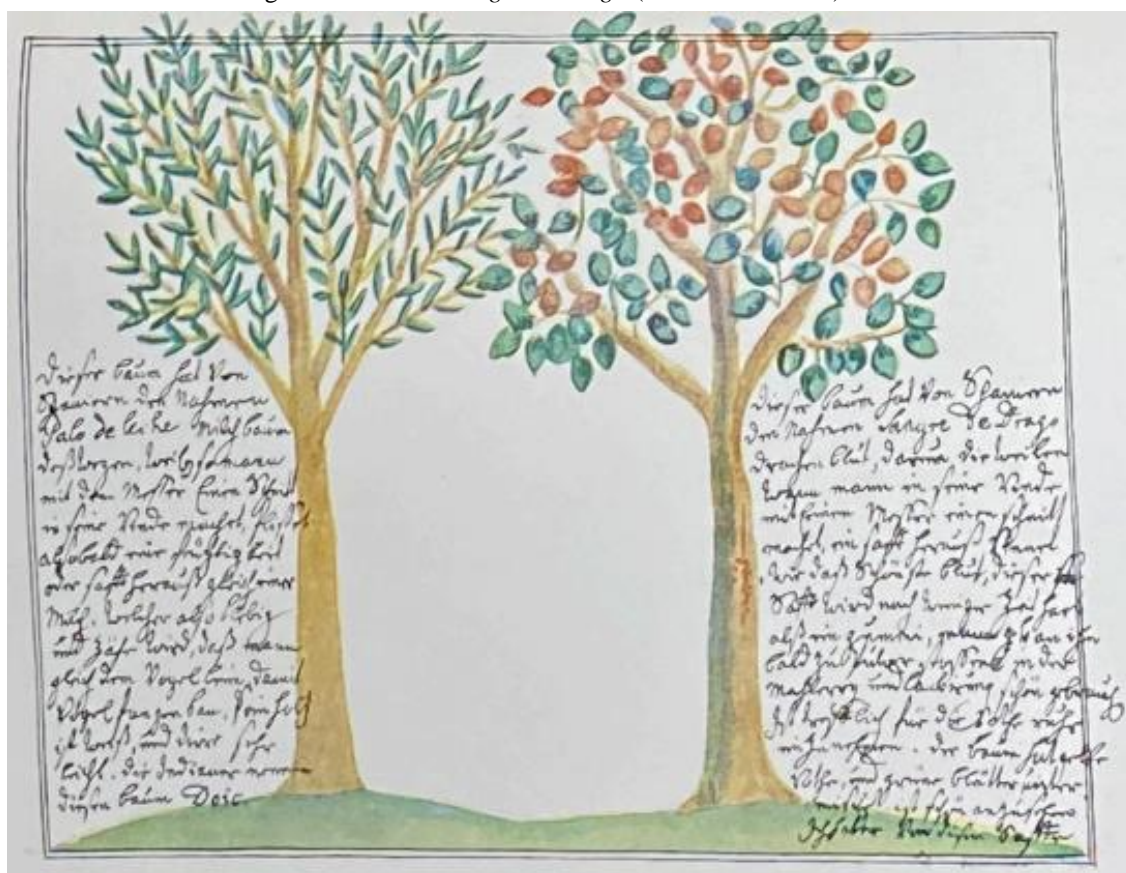 dieser baum hat von
Spaniern den Nahmen
Palo de leche Milchbaum
deßwegen, weil so mann
mit dem Messer Einen Schnit
in seine Rinde machet, flisset
alsobald eine
oder safft herauß gleich einer
Milch, welcher also klebig
und zähe wird, daß mann
gleich dem Vogelleim, damit
Vögel fangen kan, sein holtz
ist weiß, und dirr sehr
licht. die Indianer nennen
diesen baum
dieser baum hat von Spaniern
den Nahmen Sangre de Drago
drachen blut, darum die weilen
wann mann in seine Rinde
mit einem Messer einen schnitt
machet, ein safft herauß
wie daß Schönste blut, dieser
Safft wird nach weniger Zeit hart
alß ein gummi,
bald zu pulver in der
Mahlerey und schön gebrauch
ist trefflich für die Rothe ruhr
ein zu nehmen. der baum hat gelbe
Rothe, und grüne blätter unter
ist schön anzusehen
Ich habe von diesem Safft